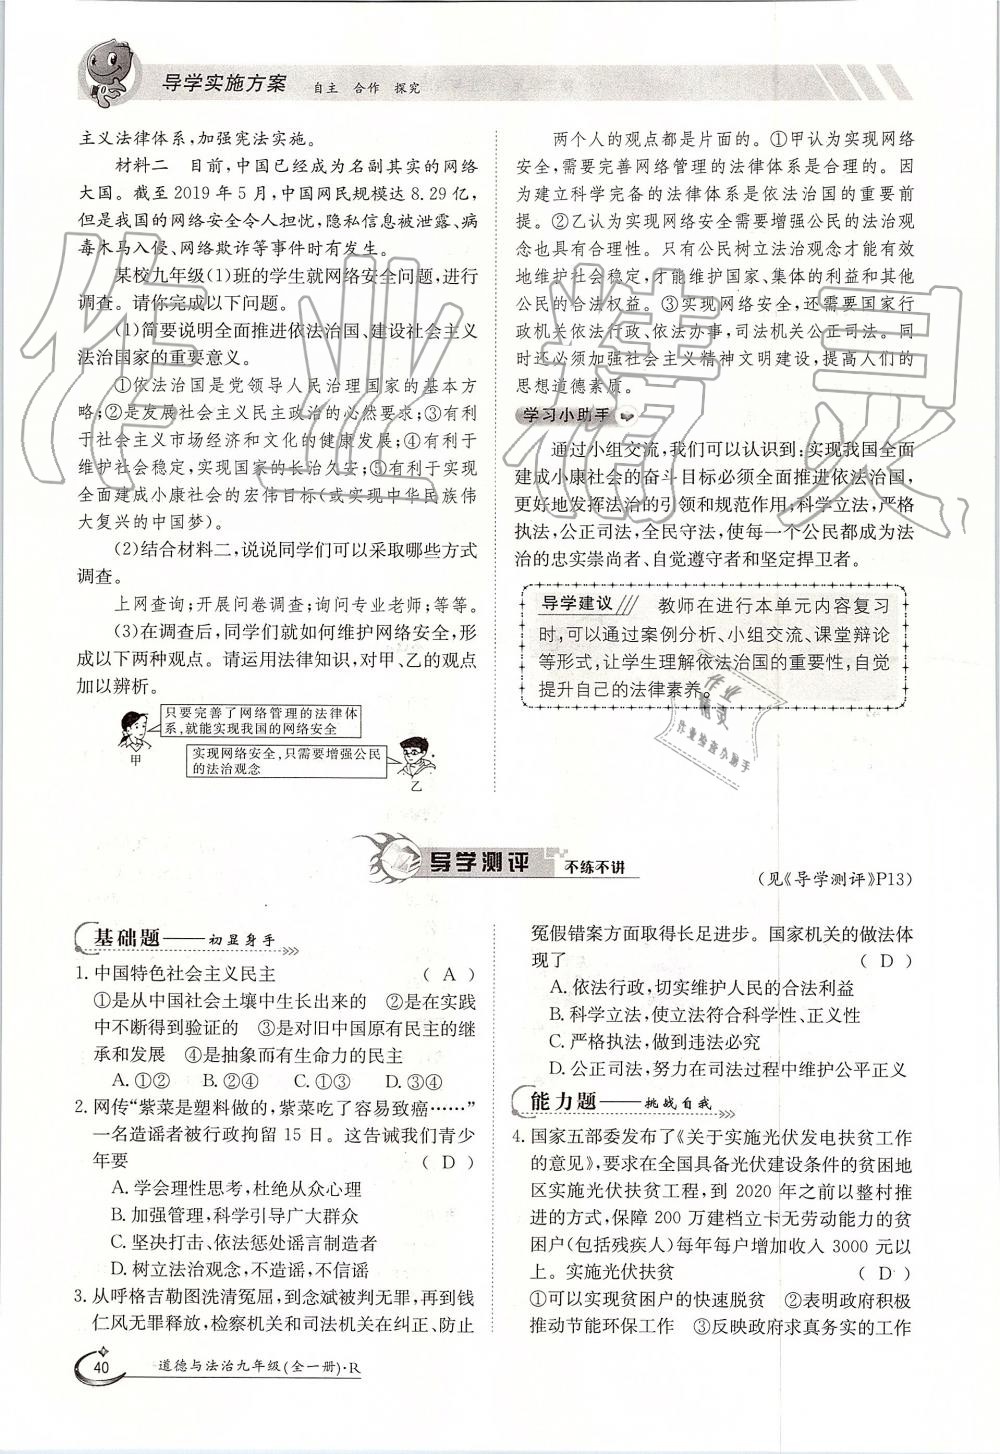 导学实施方案 自主 合作 探究
主义法律体系,加强宪法实施。
材料二 目前,中国已经成为名副其实的网络
大国。截至 2019 年 5 月,中国网民规模达 8.29 亿,
但是我国的网络安全令人担忧,隐私信息被泄露、病
毒木马入侵、网络欺诈等事件时有发生。
某校九年级(1)班的学生就网络安全问题,进行
调查。请你完成以下问题。
(1)简要说明全面推进依法治国、建设社会主义
法治国家的重要意义。
①依法治国是党领导人民治理国家的基本方
略;②是发展社会主义民主政治的必然要求;③有利
于社会主义市场经济和文化的健康发展;④有利于
维护社会稳定,实现国家的长治久安;⑤有利于实现
全面建成小康社会的宏伟目标(或实现中华民族伟
大复兴的中国梦)。
(2)结合材料二,说说同学们可以采取哪些方式
调查。
上网查询;开展问卷调查;询问专业老师;等等。
(3)在调查后,同学们就如何维护网络安全,形
成以下两种观点。请运用法律知识,对甲、乙的观点
加以辨析。
只要完善了网络管理的法律体
系,就能实现我国的网络安全
甲
实现网络安全,只需要增强公民
的法治观念
乙
两个人的观点都是片面的。①甲认为实现网络
安全,需要完善网络管理的法律体系是合理的。因
为建立科学完备的法律体系是依法治国的重要前
提。②乙认为实现网络安全需要增强公民的法治观
念也具有合理性。只有公民树立法治观念才能有效
地维护社会稳定,才能维护国家、集体的利益和其他
公民的合法权益。③实现网络安全,还需要国家行
政机关依法行政、依法办事,司法机关公正司法。同
时还必须加强社会主义精神文明建设,提高人们的
思想道德素质。
学习小助手
通过小组交流,我们可以认识到:实现我国全面
建成小康社会的奋斗目标必须全面推进依法治国,
更好地发挥法治的引领和规范作用;科学立法,严格
执法,公正司法,全民守法,使每一个公民都成为法
治的忠实崇尚者、自觉遵守者和坚定捍卫者。
导学建议 教师在进行本单元内容复习
时,可以通过案例分析、小组交流、课堂辩论
等形式,让学生理解依法治国的重要性,自觉
提升自己的法律素养。
作业精灵
作业精灵
作业检查小助手
导学测评 不练不讲
(见《导学测评》P13)
基础题——初显身手
1. 中国特色社会主义民主 ( A )
①是从中国社会土壤中生长出来的 ②是在实践
中不断得到验证的 ③是对旧中国原有民主的继
承和发展 ④是抽象而有生命力的民主
A. ①② B. ②③ C. ①③ D. ③④
2. 网传“紫菜是塑料做的,紫菜吃了容易致癌……”
一名造谣者被行政拘留 15 日。这告诫我们青少
年要 ( D )
A. 学会理性思考,杜绝从众心理
B. 加强管理,科学引导广大群众
C. 坚决打击、依法惩处谣言制造者
D. 树立法治观念,不造谣,不信谣
3. 从呼格吉勒图洗清冤屈,到念斌被判无罪,再到钱
仁风无罪释放,检察机关和司法机关在纠正、防止
冤假错案方面取得长足进步。国家机关的做法体
现了 ( D )
A. 依法行政,切实维护人民的合法利益
B. 科学立法,使立法符合科学性、正义性
C. 严格执法,做到违法必究
D. 公正司法,努力在司法过程中维护公平正义
能力题——挑战自我
4. 国家五部委发布了《关于实施光伏发电扶贫工作
的意见》,要求在全国具备光伏建设条件的贫困地
区实施光伏扶贫工程,到 2020 年之前以整村推
进的方式,保障 200 万建档立卡无劳动能力的贫
困户(包括残疾人)每年每户增加收入 3000 元以
上。实施光伏扶贫 ( D )
①可以实现贫困户的快速脱贫 ②表明政府积极
推动节能环保工作 ③反映政府求真务实的工作
40 道德与法治九年级(全一册)·R